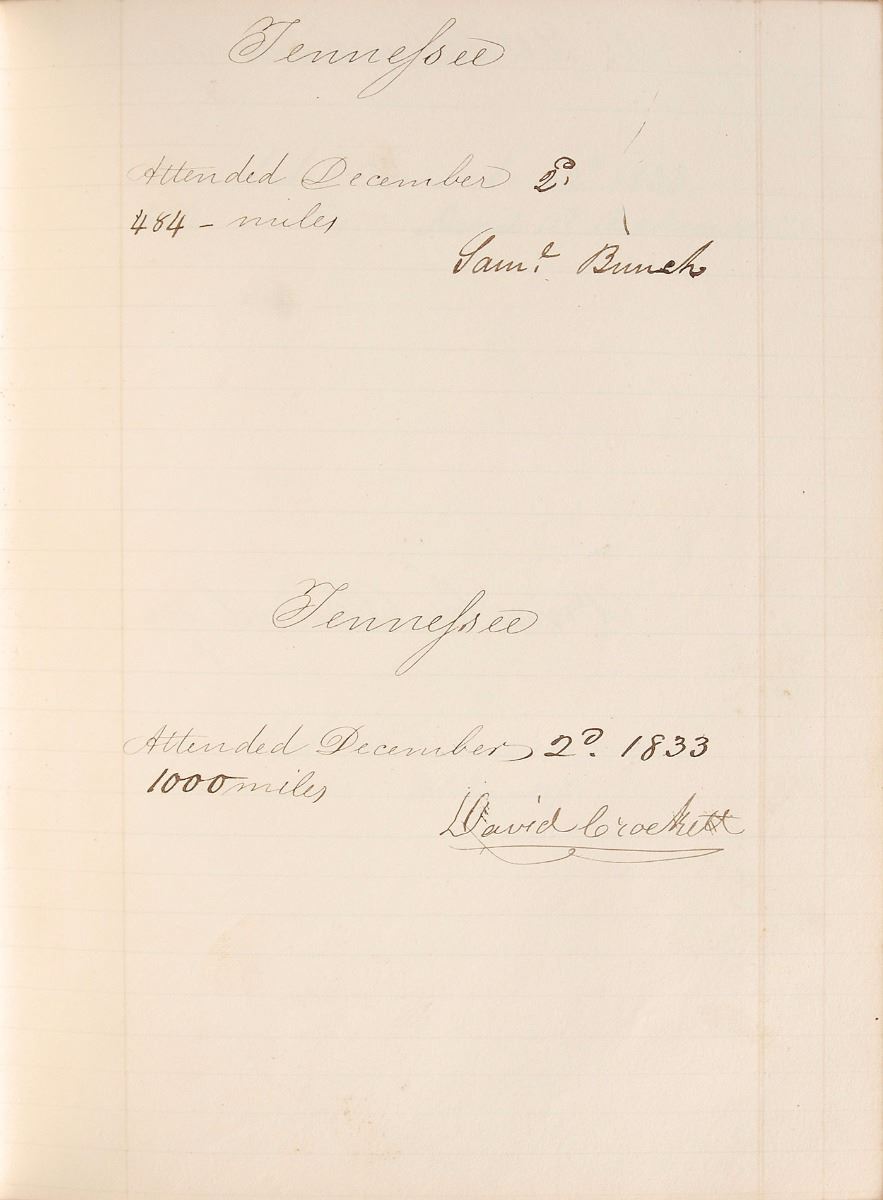 Tennessee
Attended December 2d.
484 - miles
Saml. Bunch
Tennessee
Attended December 2d. 1833
1000 miles
David Crockett